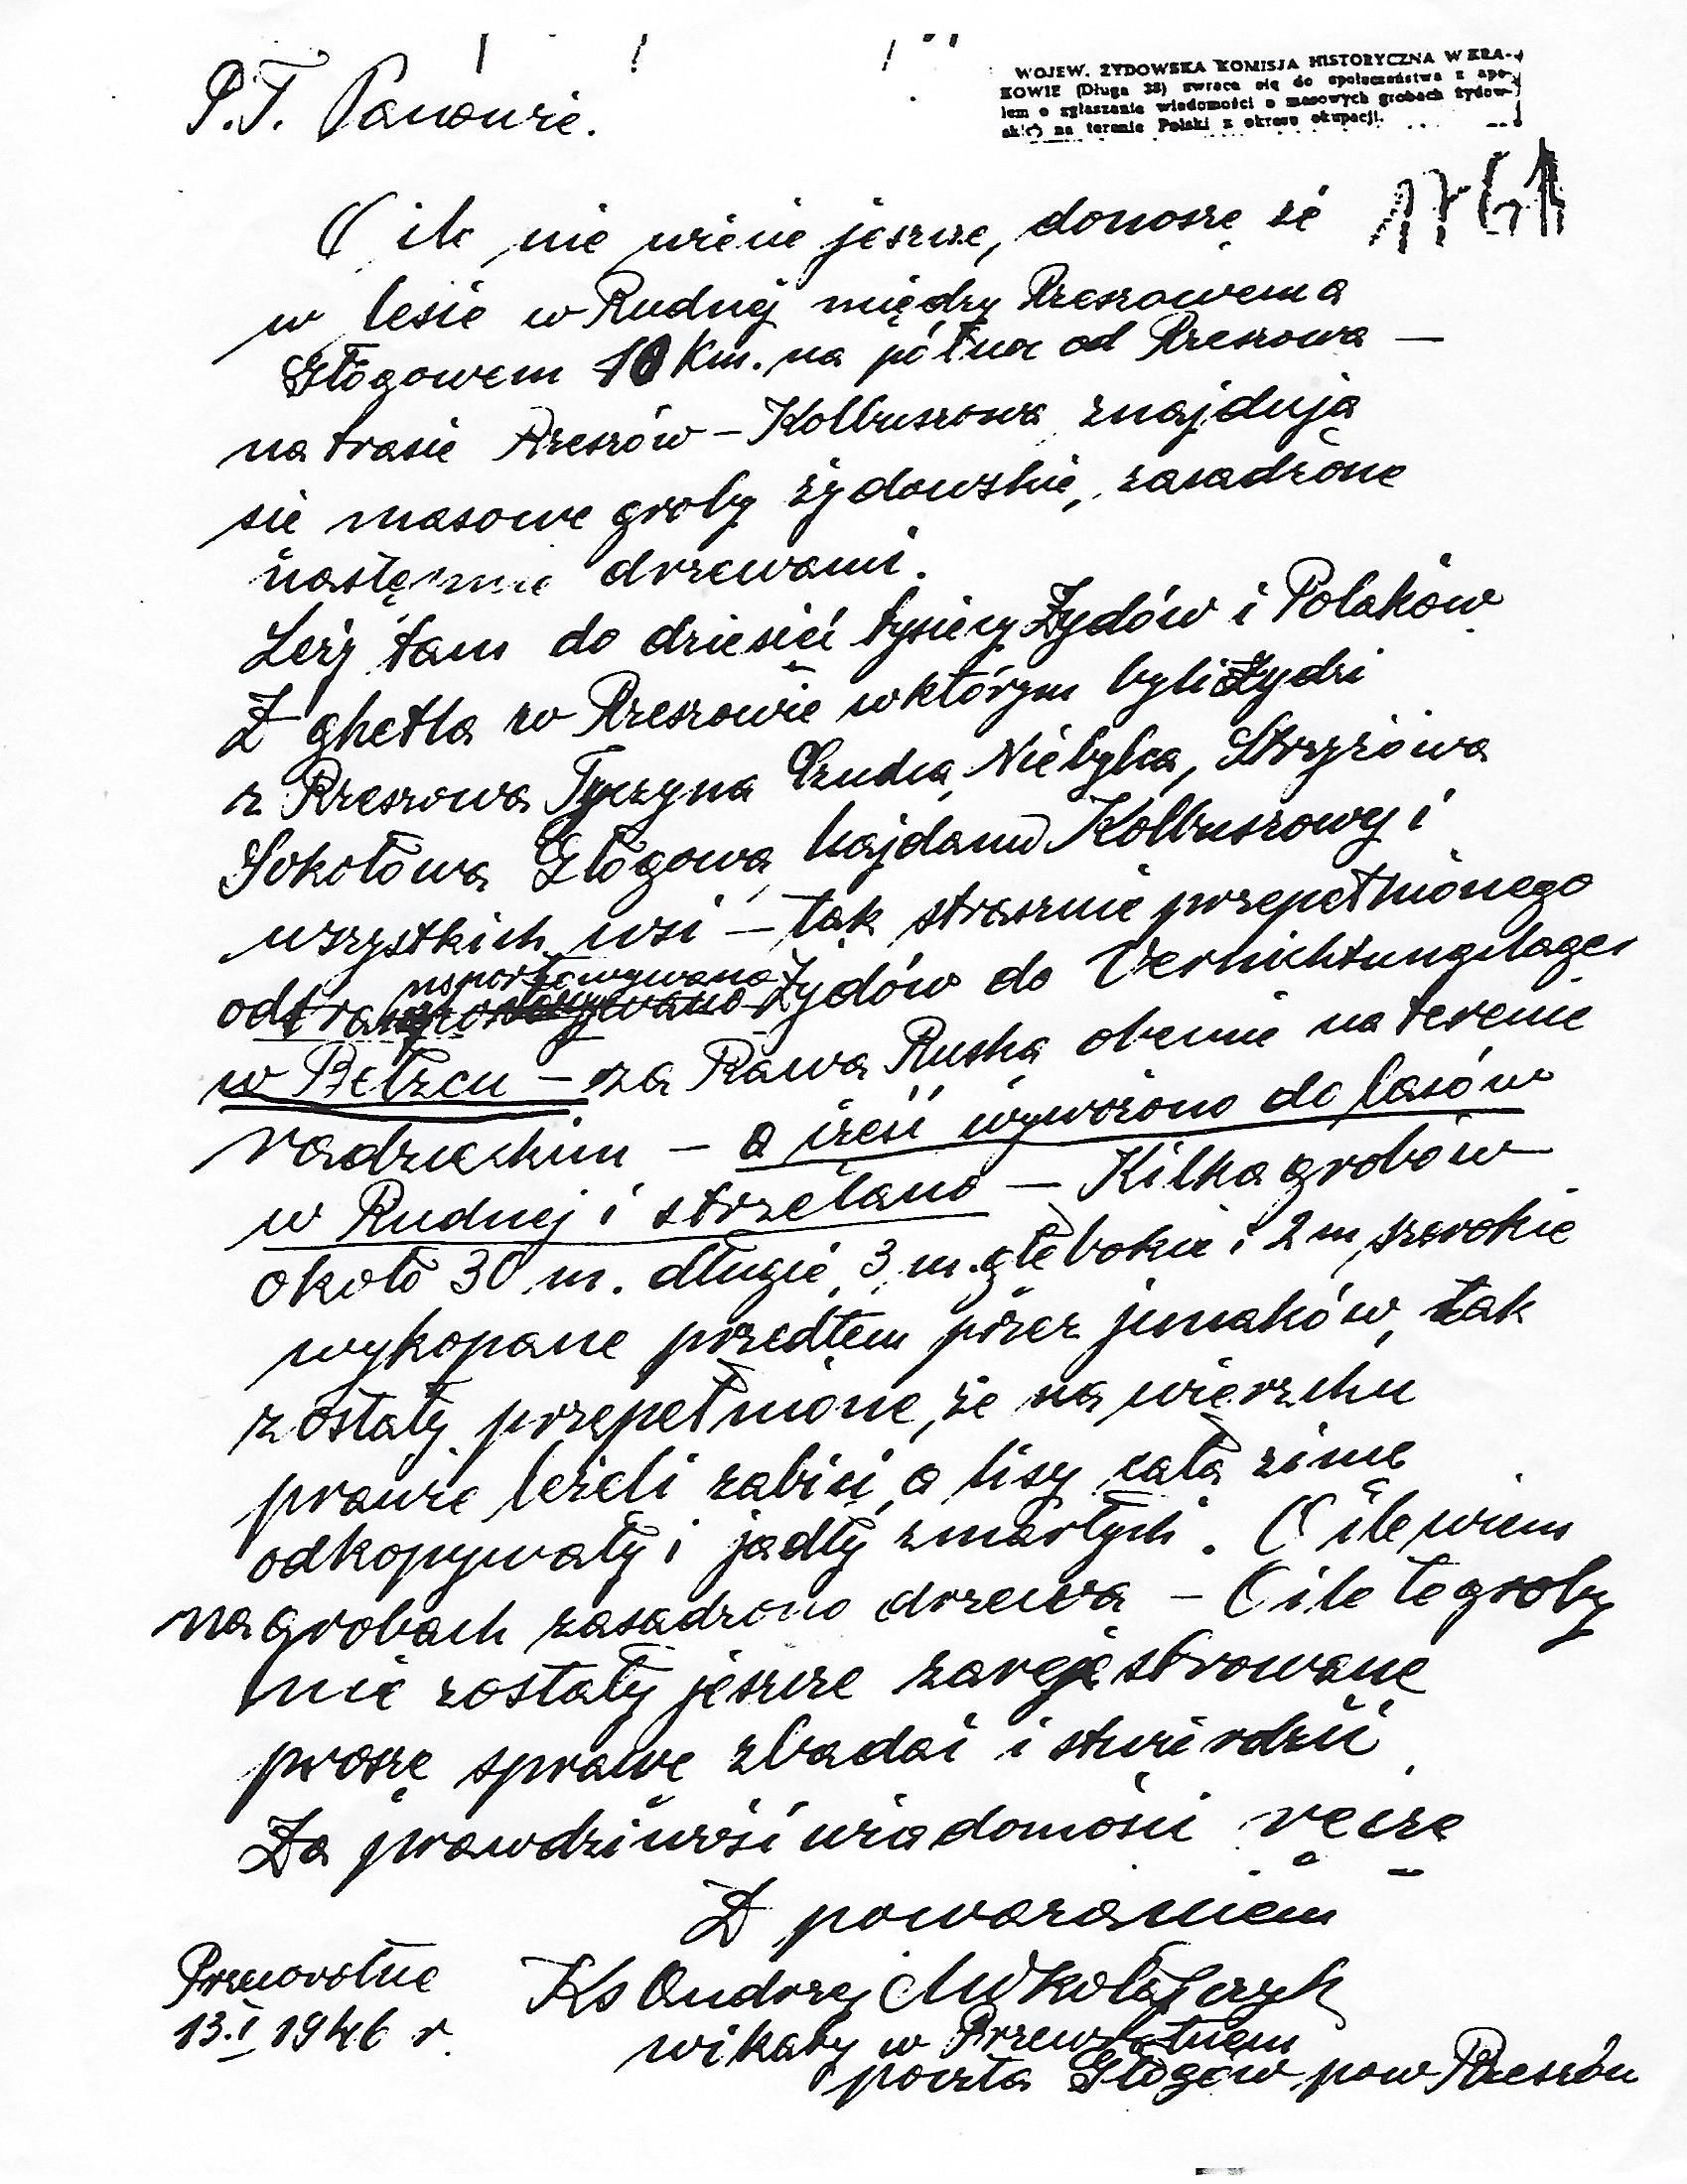 P.T. Panowie.
WOJEW. ŻYDOWSKA KOMISJA HISTORYCZNA W KRA-
KOWIE (Długa 38) zwraca się do społeczeństwa z ape-
lem o zgłaszanie wiadomości o masowych grobach żydow-
skich na terenie Polski z okresu okupacji.
O ile nie wiecie jeszcze, donoszę że
w lesie w Rudnej między Rzeszowem a
Głogowem 10 Km. na północ od Rzeszowa —
na trasie Rzeszów – Kolbuszowa znajdują
sie masowe groby żydowskie, zasadzone
następnie drzewami.
Leży tam do dziesięć tysięcy Żydów i Polaków
Z ghetta w Rzeszowie w którym byli Żydzi
z Rzeszowa Tyczyna Czudca, Niebylca, Strzyżowa
Sokołowa Głogowa, Majdanu Kolbuszowej i
wszystkich wsi – tak strasznie przepełnionego
odtransportowywano Żydów do Vernichtungslager
w Bełzcu – za Rawa Ruską obecnie na terenie
radzieckim – a część wywożono do lasów
w Rudnej i strzelano – Kilka grobów
około 30 m. długie, 3 m. głębokie i 2 m, szerokie
wykopane przedtem przez junaków, tak
zostały przepełnione, że na wierzchu
prawie leżeli zabici, a lisy całą zimę
odkopywały i jadły zmarłych. O ile wiem
na grobach zasadzono drzewa – O ile te groby
nie zostały jeszcze zarejestrowane
proszę sprawę zbadać i stwierdzić.
Za prawdziwość wiadomości ręczę
Z poważaniem
Przewrotne
13.I 1946 r.
Ks Andrzej Mikołajczyk
wikary w Przewrotnem
poczta Głogów, pow Rzeszów